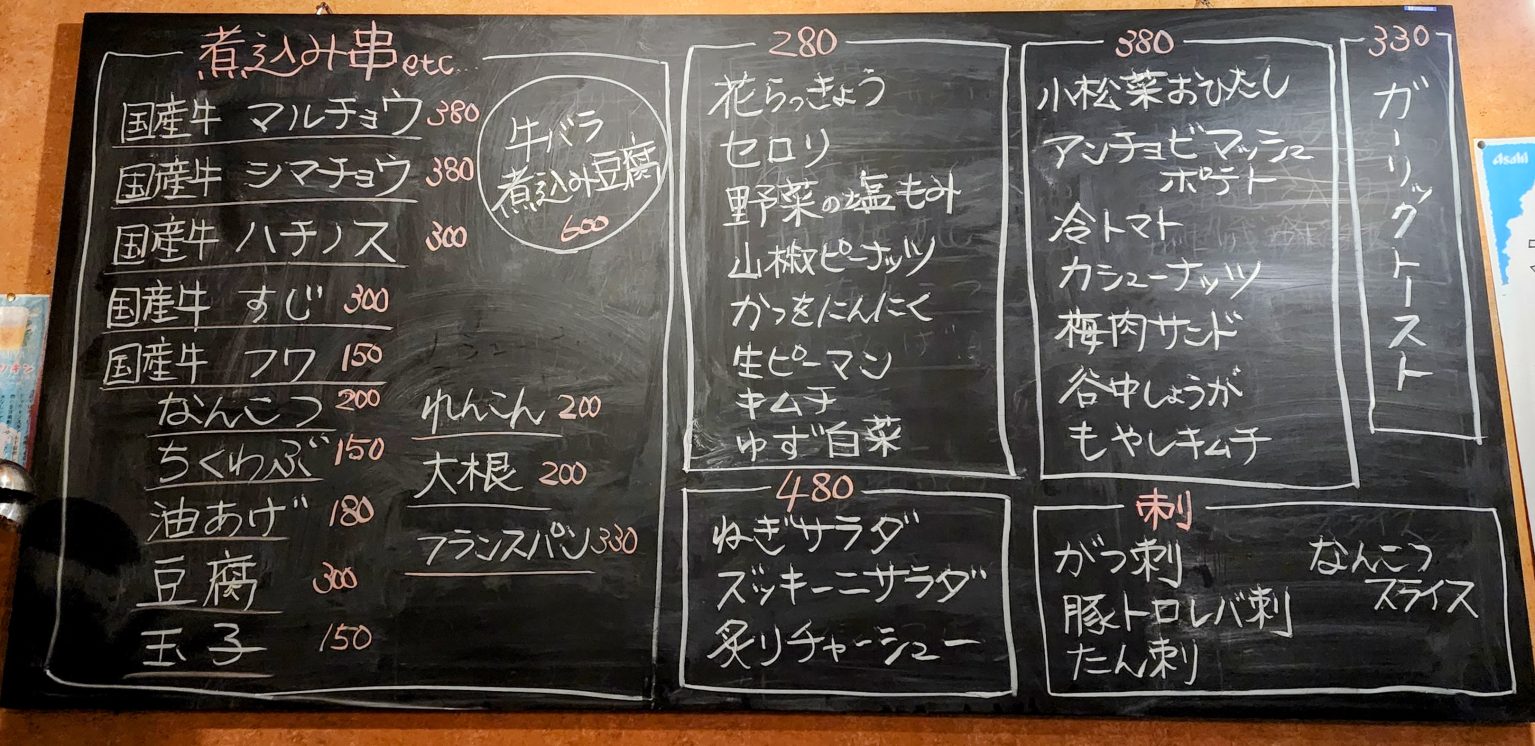 煮込み串etc
国産牛 マルチョウ 380
国産牛 シマチョウ 380
国産牛 ハチノス 300
国産牛 すじ 300
国産牛 フワ 150
なんこつ 200
ちくわぶ 150
油あげ 180
豆腐 300
玉子 150
牛バラ
煮込み豆腐
600
れんこん 200
大根 200
フランスパン 330
280
花らっきょう
セロリ
野菜の塩もみ
山椒ピーナッツ
かつをにんにく
生ピーマン
キムチ
ゆず白菜
480
ねぎサラダ
ズッキーニサラダ
炙りチャーシュー
380
小松菜おひたし
アンチョビマッシュ
ポテト
冷トマト
カシューナッツ
梅肉サンド
谷中しょうが
もやしキムチ
330
ガーリックトースト
刺
がつ刺
豚トロレバ刺
たん刺
なんこつ
スライス
Asahi